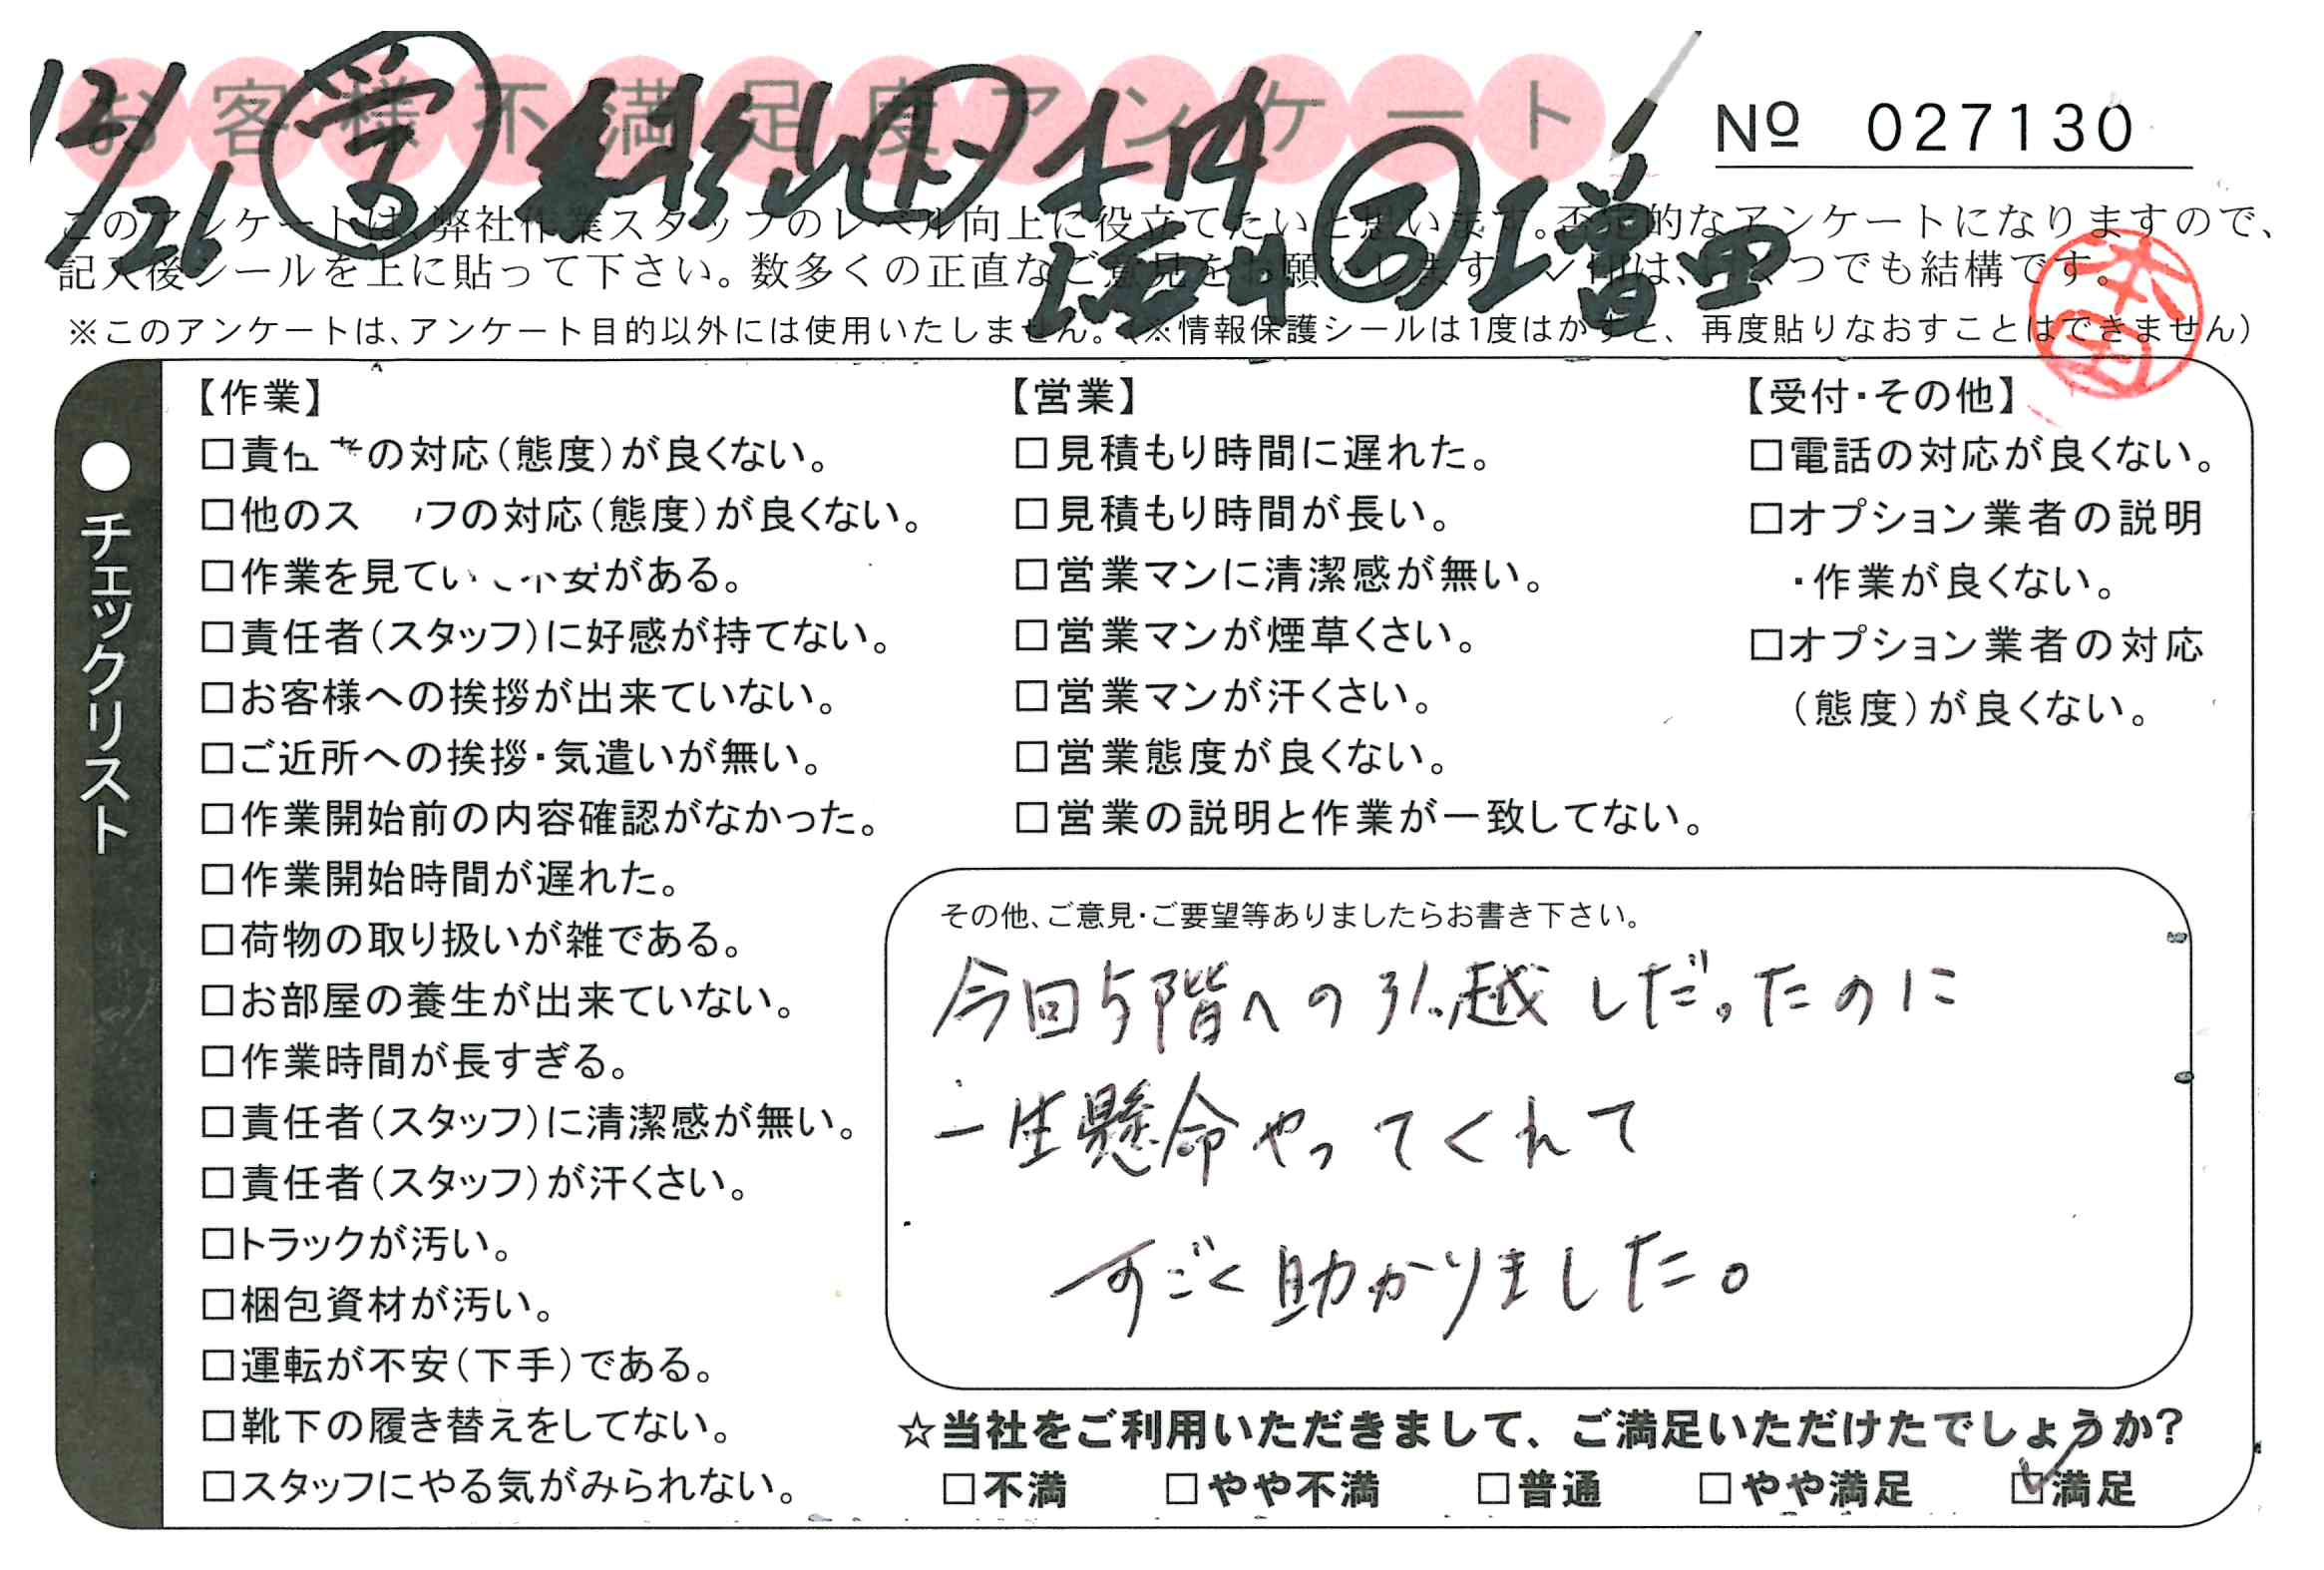 お客様不満足度アンケート
№ 027130
12/26
このアンケートは、弊社作業スタッフのレベル向上に役立てたいと思います。否定的なアンケートになりますので、
記入後シールを上に貼って下さい。数多くの正直なご意見をお願いします。
つでも結構です。
本田
※このアンケートは、アンケート目的以外には使用いたしません。(※情報保護シールは1度はがすと、再度貼りなおすことはできません)
●チェックリスト
【作業】
□責任者の対応(態度)が良くない。
□他のス フの対応(態度)が良くない。
□作業を見てい 不安がある。
□責任者(スタッフ)に好感が持てない。
□お客様への挨拶が出来ていない。
□ご近所への挨拶・気遣いが無い。
□作業開始前の内容確認がなかった。
□作業開始時間が遅れた。
□荷物の取り扱いが雑である。
□お部屋の養生が出来ていない。
□作業時間が長すぎる。
□責任者(スタッフ)に清潔感が無い。
□責任者(スタッフ)が汗くさい。
□トラックが汚い。
□梱包資材が汚い。
□運転が不安(下手)である。
□靴下の履き替えをしてない。
□スタッフにやる気がみられない。
【営業】
□見積もり時間に遅れた。
□見積もり時間が長い。
□営業マンに清潔感が無い。
□営業マンが煙草くさい。
□営業マンが汗くさい。
□営業態度が良くない。
□営業の説明と作業が一致してない。
【受付・その他】
□電話の対応が良くない。
□オプション業者の説明
・作業が良くない。
□オプション業者の対応
(態度)が良くない。
その他、ご意見・ご要望等ありましたらお書き下さい。
今回5階への引っ越しだったのに
一生懸命やってくれて
すごく助かりました。
☆当社をご利用いただきまして、ご満足いただけたでしょうか?
□不満 □やや不満 □普通 □やや満足 ☑満足